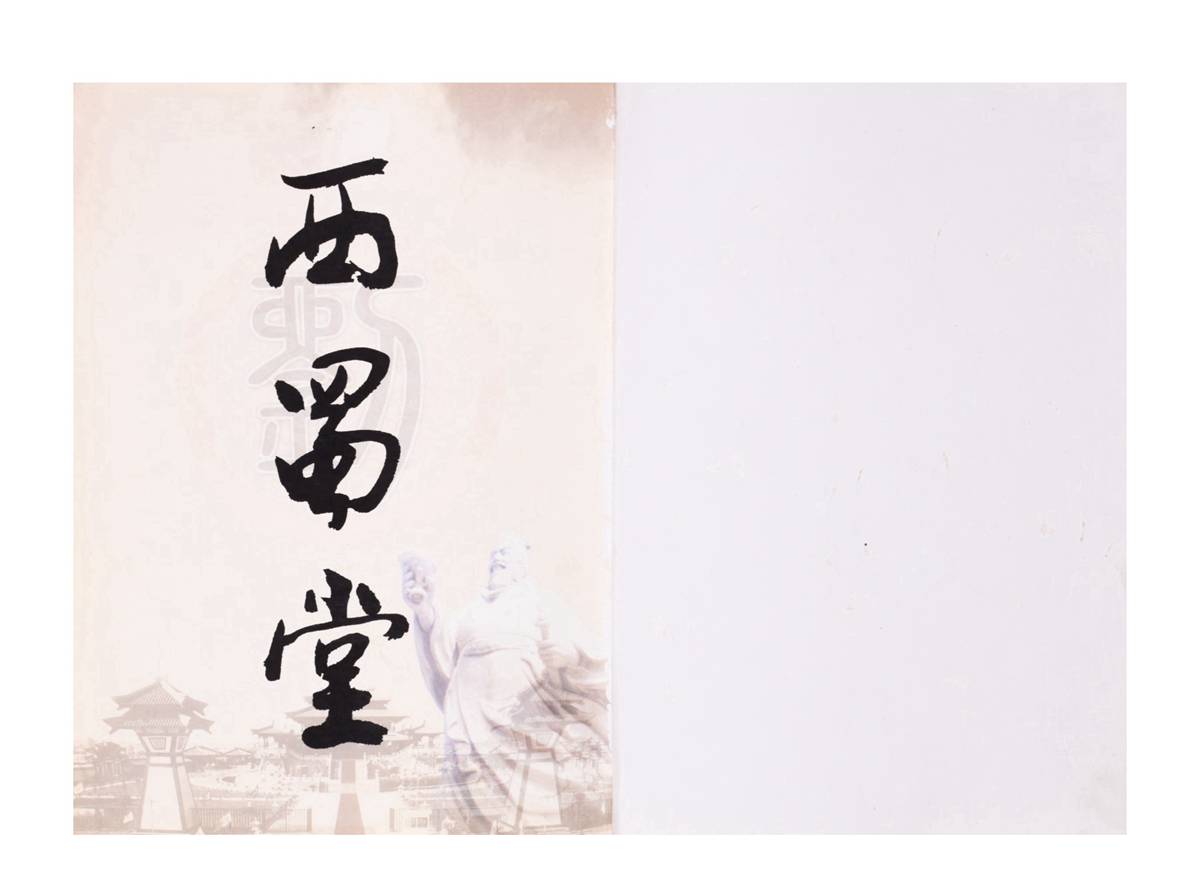 西蜀堂